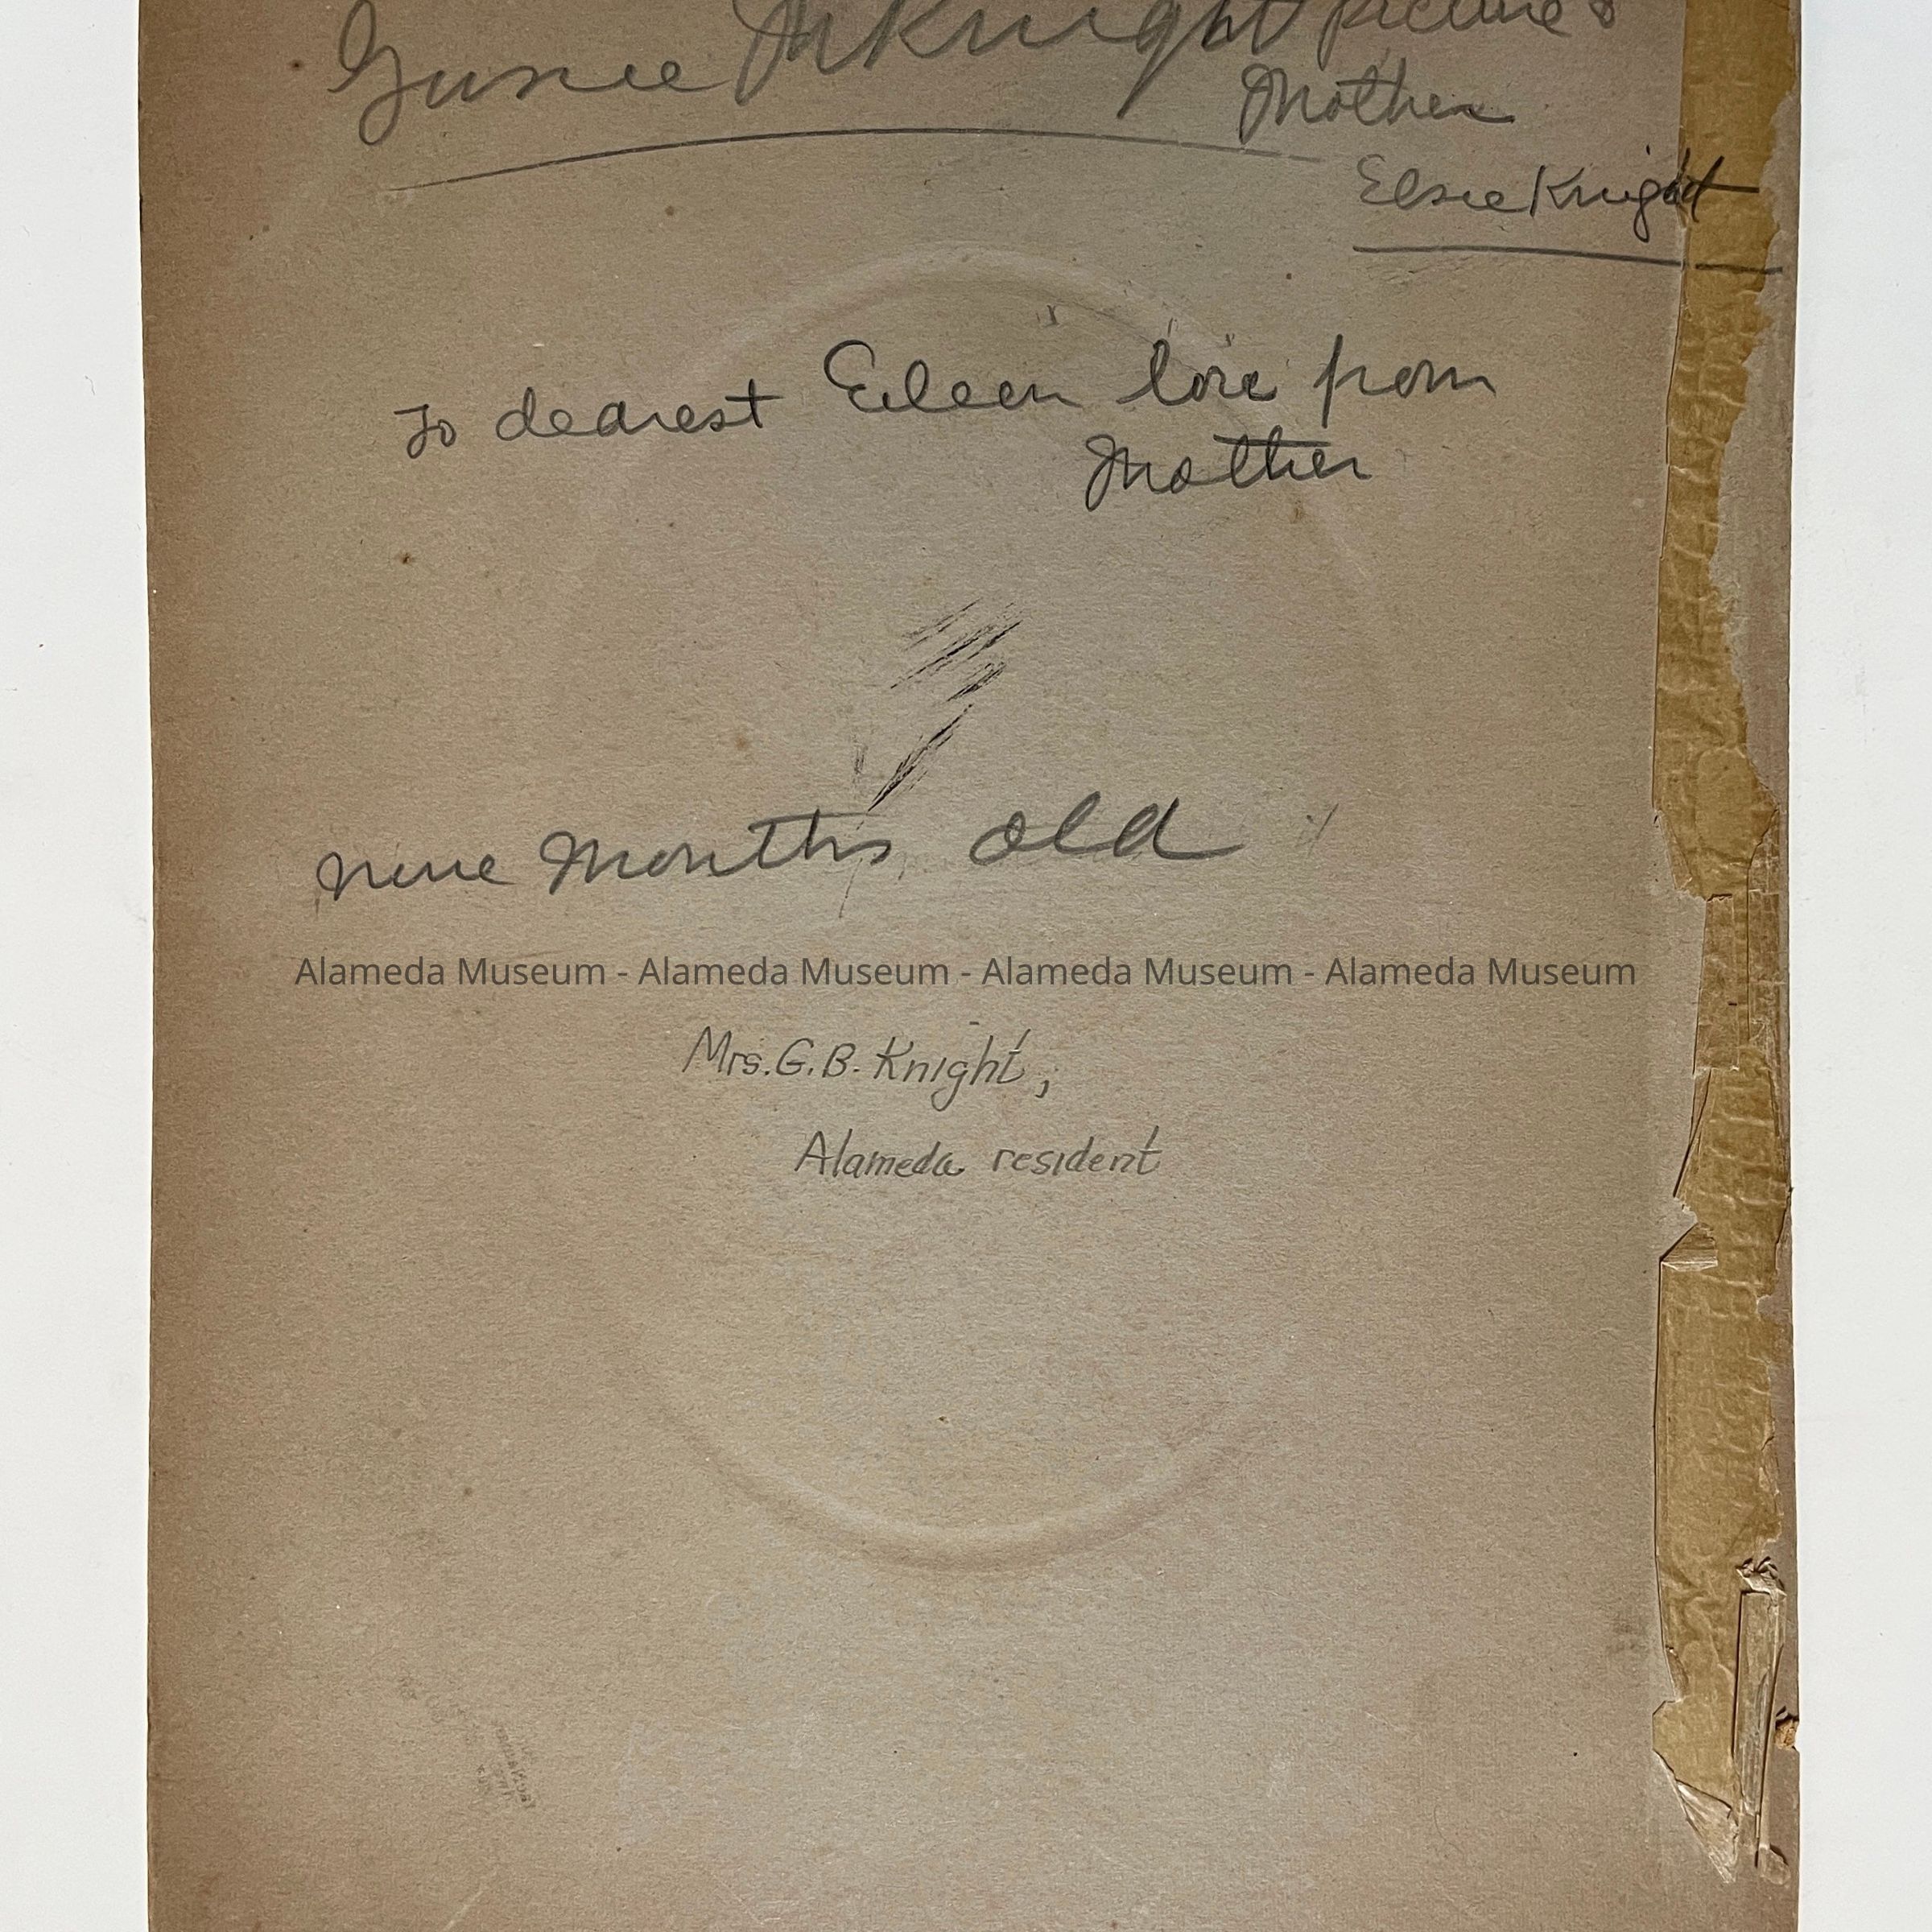 Gussie McKnight picture &
Mother
Elsie Knight
To dearest Eileen love from
Mother
nine months old
Alameda Museum - Alameda Museum - Alameda Museum - Alameda Museum
Mrs. G. B. Knight,
Alameda resident